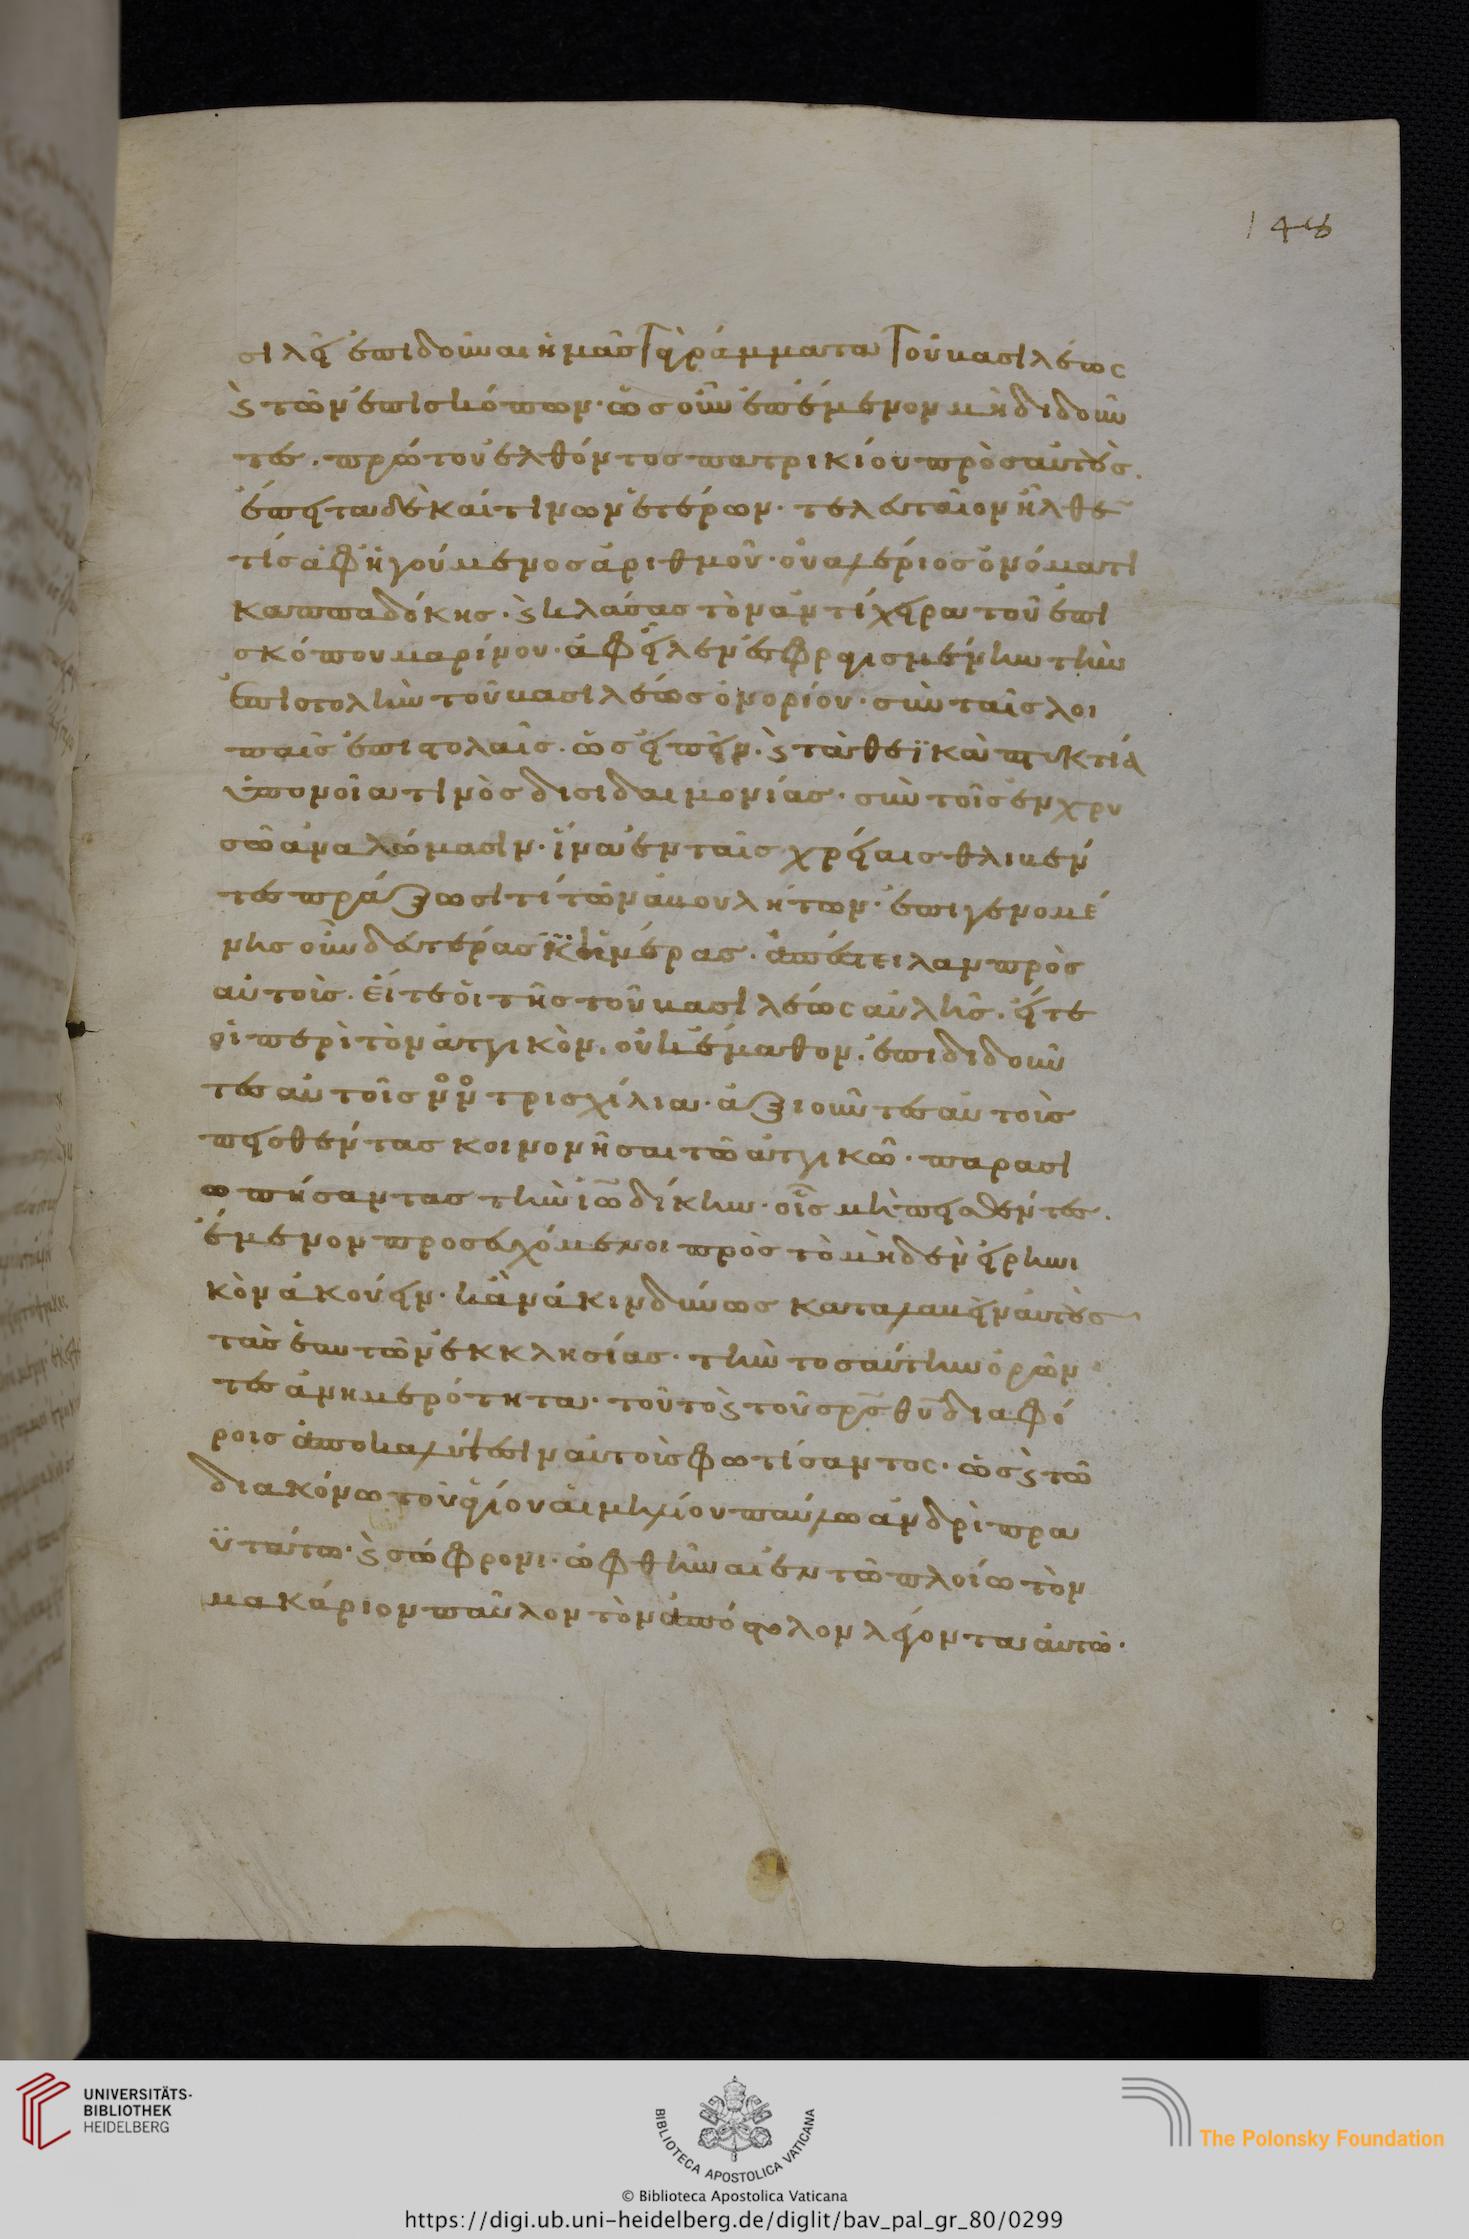 148
σιλεῖ ἐπιδοῦναι ἡμᾶς γράμματα τοῦ βασιλέως
καὶ τῶν ἐπισκόπων· ὡς οὖν ἐπέμενον μὴ διδοῦν
τες. πρώτου ἐλθόντος πατρικίου πρὸς αὐτοὺς.
ἔπειτα δὲ καί τινων ἑτέρων· τελευταῖον ἦλθε
τίς ἀφηγούμενος ἀριθμοῦ· οὐαλέριος ὀνόματι
καππαδόκης· καὶ κλάσας τὸν ἀντίχειρα τοῦ ἐπι
σκόπου μαρίνου· ἀφεῖλεν ἐσφραγισμένην τὴν
ἐπιστολὴν τοῦ βασιλέως ὁνορίου· σὺν ταῖς λοι
παῖς ἐπιστολαῖς.
ὑπονοία τινὸς δισιδαιμονίας· σὺν τοῖς ἐν χρυ
σῶ ἀναλώμασιν· ἵνα ἐν ταῖς χρείαις θλιβέν
τες πράξωσί τι τῶν ἀβουλήτων· ἐπιγενομέ
νης οὖν δευτέρας ἡμέρας· ἀπέστειλαν πρὸς
αὐτοὺς. εἴτε οἱ τῆς τοῦ βασιλέως αὐλῆς. εἴτε
οἱ περὶ τὸν ἀττικὸν. οὐκ ἔμαθον. ἐπιδιδοῦν
τες αὐτοῖς νονο τρισχίλια· ἀξιοῦντες αὐτοὺς
πεισθέντας κοινονῆσαι τῶ ἀττικῶ· παρασι
ωπήσαντας τὴν ἰω δίκην· οἷς μὴ πεισθέντες.
ἔμενον προσευχόμενοι πρὸς τὸ μηδὲν εἰρηνι
κὸν ἀκούειν· κἂν ἀκινδύνως καταλαβεῖν αὐτοὺς
τὰς ἑαυτῶν ἐκκλησίας· τὴν τοσαύτην ὁρῶν
τες ἀνημερότητα· τοῦτο καὶ τοῦ σρς θυ διαφό
ροις ἀποκαλύψεσιν αὐτοὺς φωτίσαντος· ὡς καὶ τῶ
διακόνω τοῦ ἁγίου αἰμηλίου παύλω ἀνδρὶ πρα
ϋτάτω· καὶ σώφρονι· ὀφθῆναι ἐν τῶ πλοίω τὸν
μακάριον παῦλον τὸν ἀπόστολον λέγοντα αὐτῶ·
UNIVERSITÄTS-
BIBLIOTHEK
HEIDELBERG
BIBLIOTECA APOSTOLICA VATICANA
The Polonsky Foundation
© Biblioteca Apostolica Vaticana
https://digi.ub.uni-heidelberg.de/diglit/bav_pal_gr_80/0299